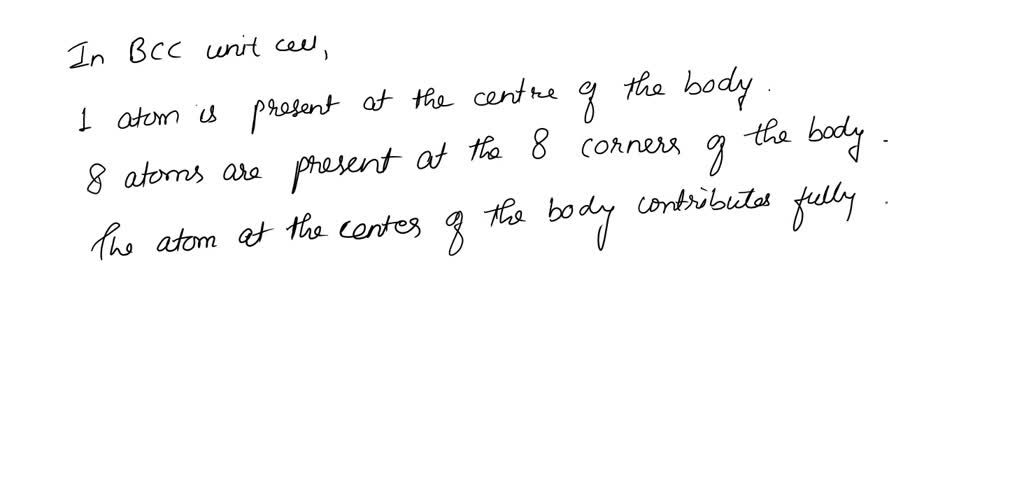 In BCC unit cell,
1 atom is present at the centre of the body.
8 atoms are present at the 8 corners of the body.
The atom at the center of the body contributes fully.